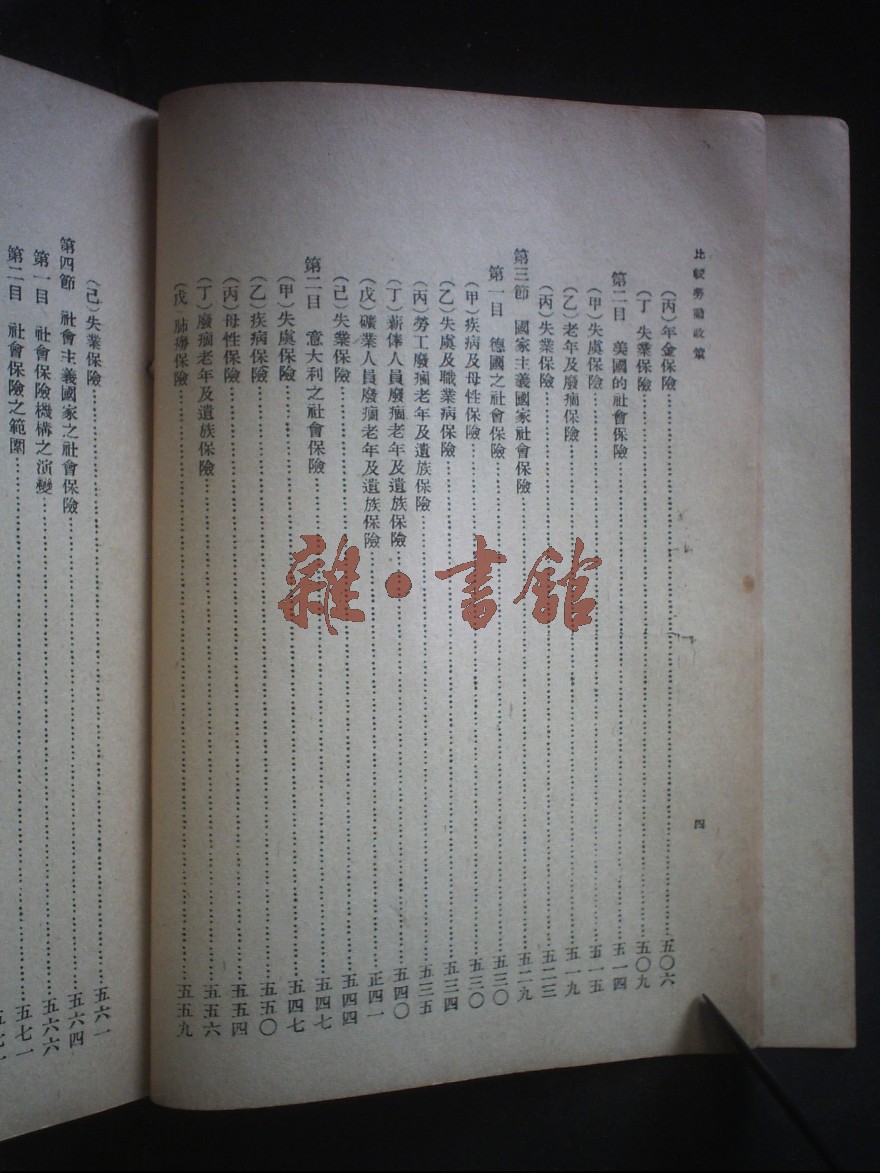 比較勞動政策
四
(丙)年金保險……五〇六
(丁)失業保險……五〇九
第二目 美國的社會保險……五一四
(甲)失虞保險……五一五
(乙)老年及廢痼保險……五一九
(丙)失業保險……五二三
第三節 國家主義國家社會保險……五二九
第一目 德國之社會保險……五三〇
(甲)疾病及母性保險……五三〇
(乙)失虞及職業病保險……五三四
(丙)勞工廢痼老年及遺族保險……五三五
(丁)薪俸人員廢痼老年及遺族保險……五四〇
(戊)礦業人員廢痼老年及遺族保險……正四一
(己)失業保險……五四四
第二目 意大利之社會保險……五四七
(甲)失虞保險……五四七
(乙)疾病保險……五五〇
(丙)母性保險……五五四
(丁)廢痼老年及遺族保險……五五六
(戊)肺癆保險……五五九
(己)失業保險……五六一
第四節 社會主義國家之社會保險……五六四
第一目 社會保險機構之演變……五六六
第二目 社會保險之範圍……五七一
雜·書館